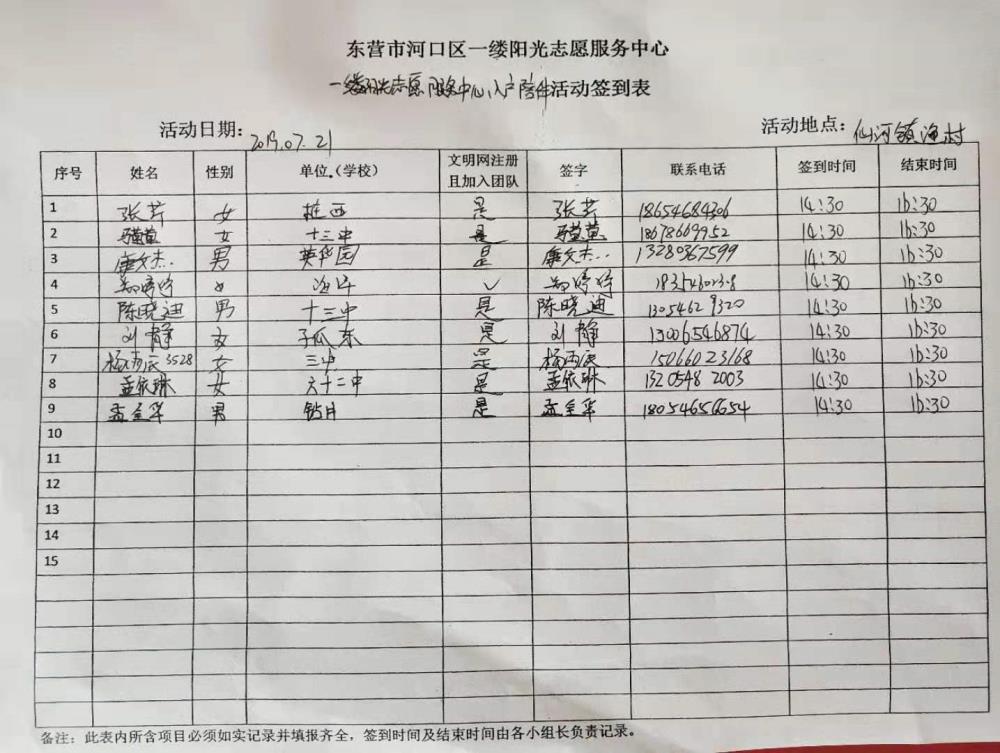 东营市河口区一缕阳光志愿服务中心
一缕阳光志愿服务中心入户陪伴活动签到表
活动日期：2019.07.21 活动地点：仙河镇渔村
序号 姓名 性别 单位（学校） 文明网注册且加入团队 签字 联系电话 签到时间 结束时间
1 张芹 女 桩西 是 张芹 18654684306 14:30 16:30
2 女 十三中 是 18678669952 14:30 16:30
3 廉文杰 男 英华园 是 廉文杰 13280367599 14:30 16:30
4 郑婷婷 女 ✓ 郑婷婷 14:30 16:30
5 陈晓迪 男 十三中 是 陈晓迪 1305462 9320 14:30 16:30
6 刘静 女 孤东 是 刘静 13006546874 14:30 16:30
7 3528 女 三中 是 15066023168 14:30 16:30
8 孟依琳 女 六十二中 是 孟依琳 1320548 2003 14:30 16:30
9 孟全华 男 是 孟全华 18054656654 14:30 16:30
10
11
12
13
14
15
备注：此表内所含项目必须如实记录并填报齐全，签到时间及结束时间由各小组长负责记录。